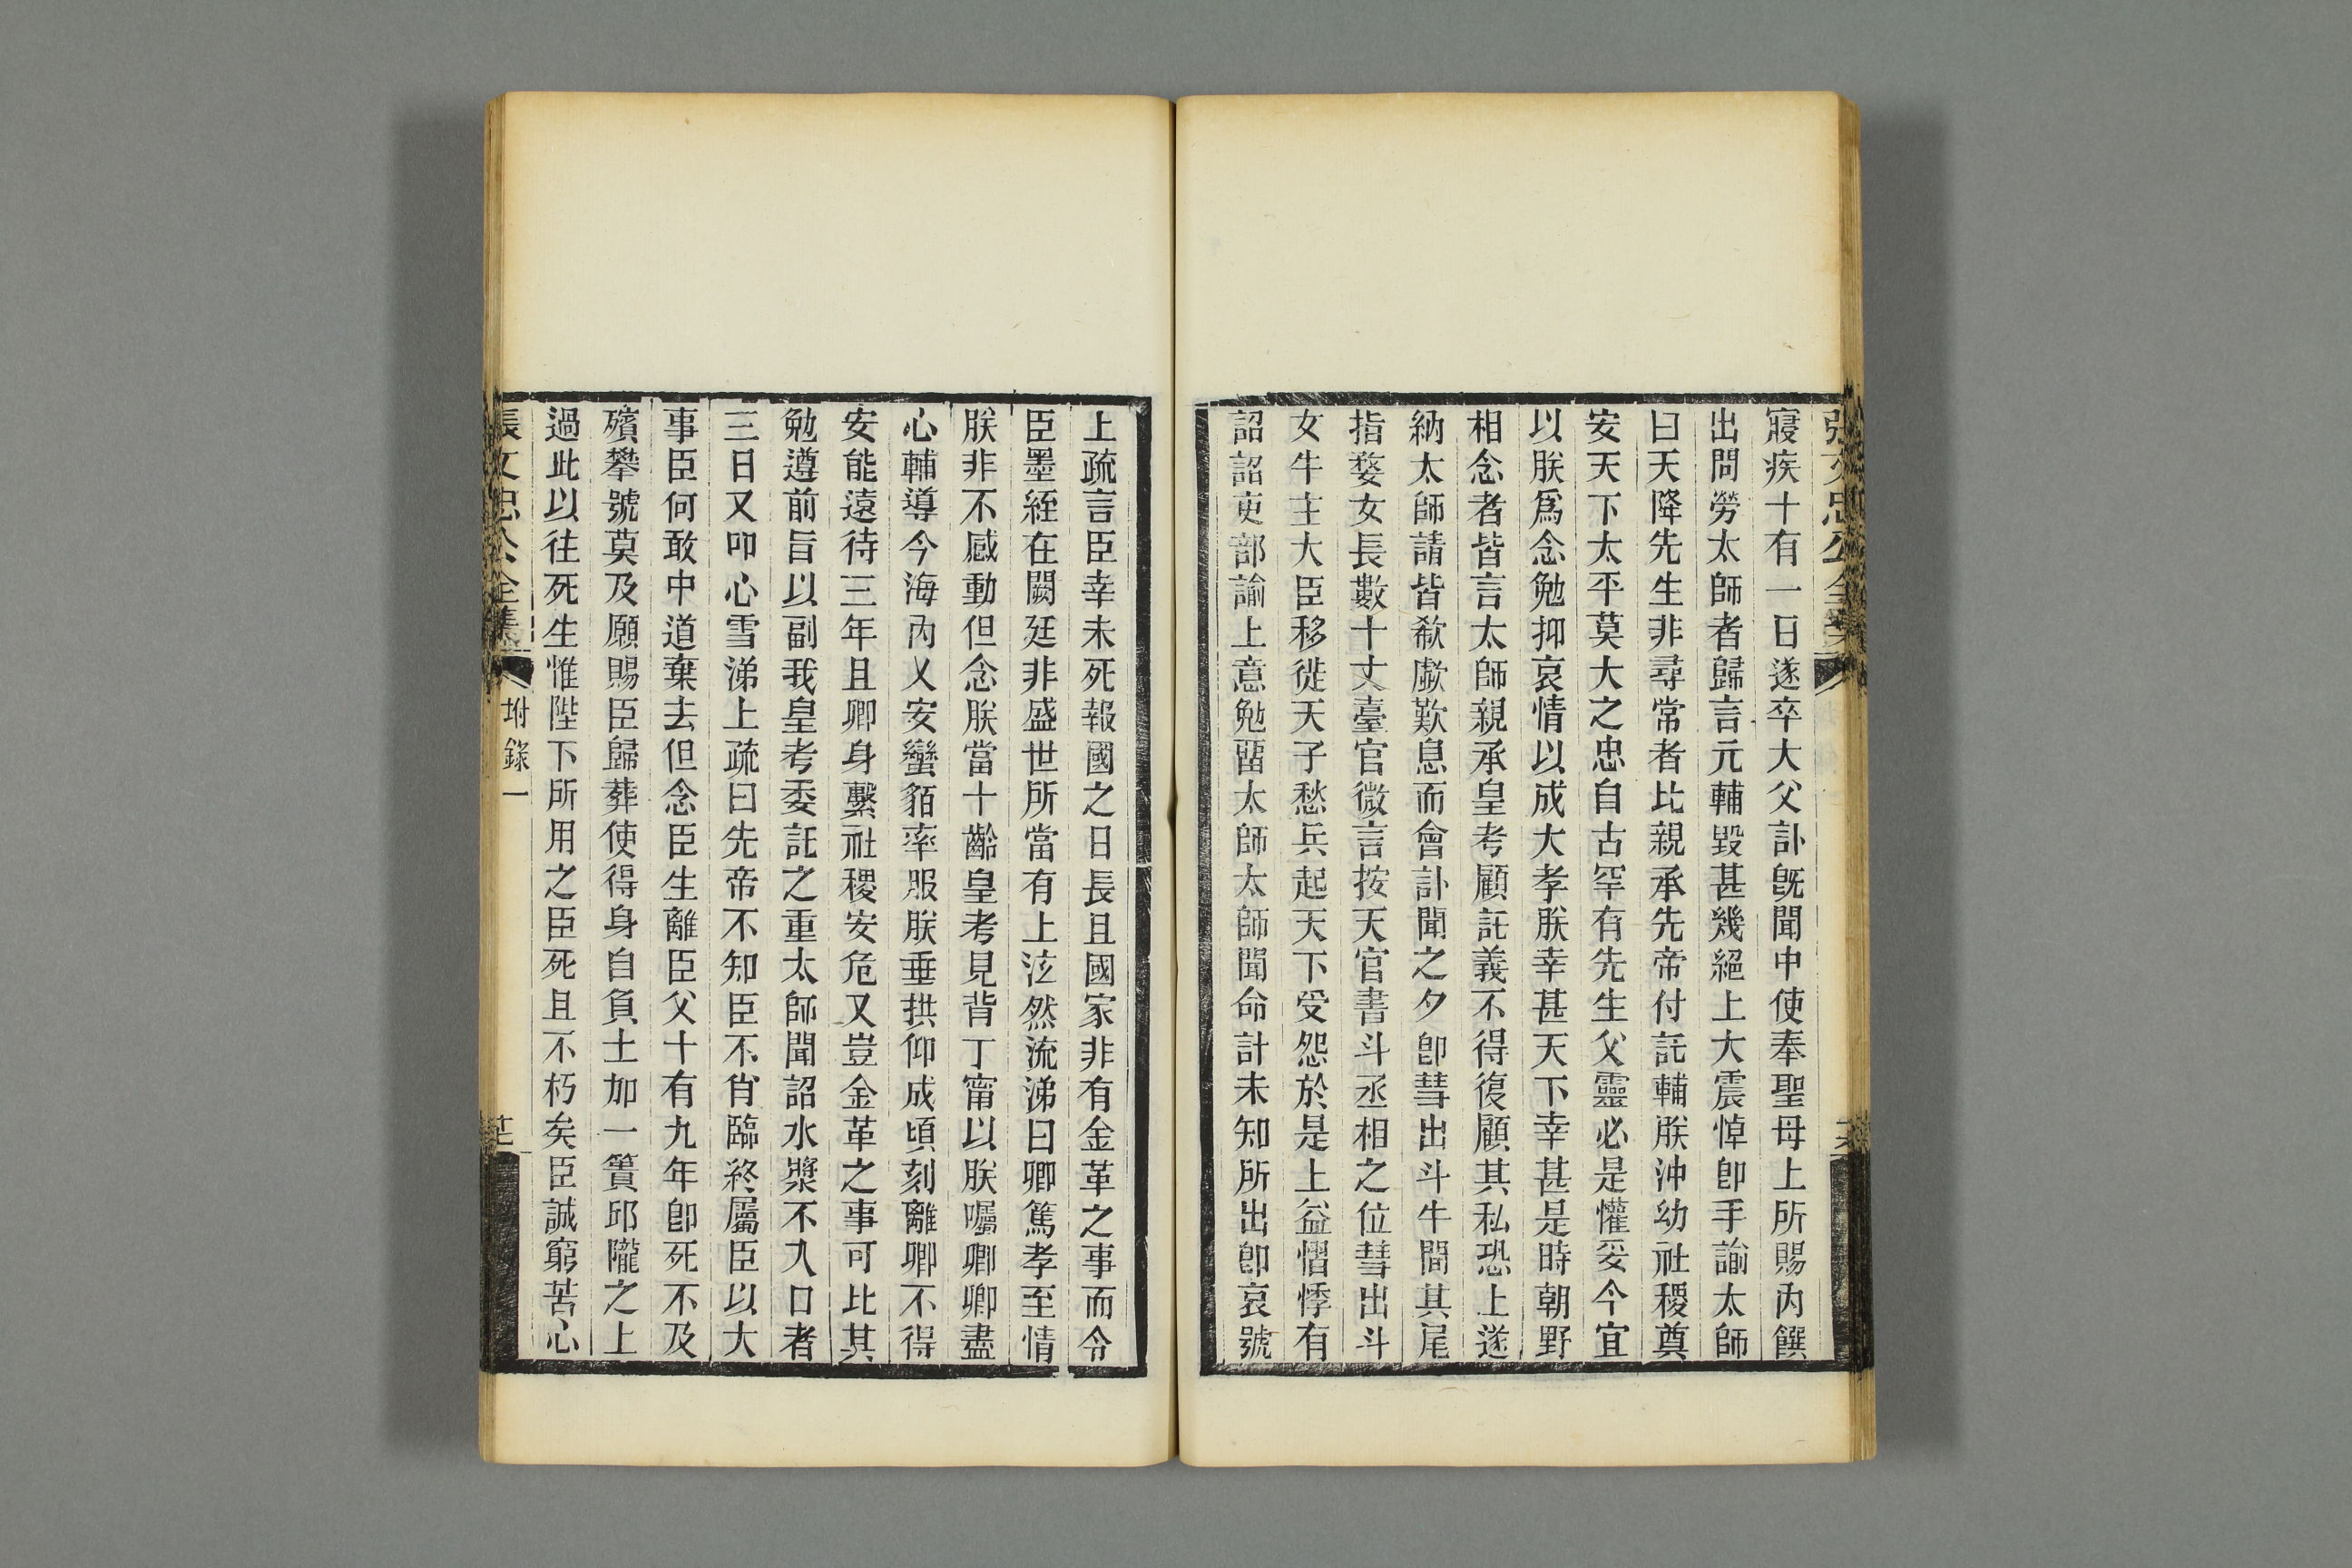 寢疾十有一日遂卒大父訃旣聞中使奉聖母上所賜內饌
出問勞太師者歸言元輔毀甚幾絕上大震悼卽手諭太師
曰天降先生非尋常者比親承先帝付託輔朕沖幼社稷奠
安天下太平莫大之忠自古罕有先生父靈必是懽妥今宜
以朕爲念勉抑哀情以成大孝朕幸甚天下幸甚是時朝野
相念者皆言太師親承皇考顧託義不得復顧其私恐上遂
納太師請皆欷歔歎息而會訃聞之夕卽彗出斗牛間其尾
指婺女長數十丈臺官微言按天官書斗丞相之位彗出斗
女牛主大臣移徙天子愁兵起天下受怨於是上益慴悸有
詔詔吏部諭上意勉畱太師太師聞命計未知所出卽哀號
上疏言臣幸未死報國之日長且國家非有金革之事而令
臣墨絰在闕廷非盛世所當有上泫然流涕曰卿篤孝至情
朕非不感動但念朕當十齡皇考見背丁甯以朕囑卿卿盡
心輔導今海內乂安蠻貊率服朕垂拱仰成頃刻離卿不得
安能遠待三年且卿身繫社稷安危又豈金革之事可比其
勉遵前旨以副我皇考委託之重太師聞詔水漿不入口者
三日又叩心雪涕上疏曰先帝不知臣不肖臨終屬臣以大
事臣何敢中道棄去但念臣生離臣父十有九年卽死不及
殯攀號莫及願賜臣歸葬使得身自負土加一簣邱隴之上
過此以往死生惟陛下所用之臣死且不朽矣臣誠窮苦心
張文忠公全集
附錄一